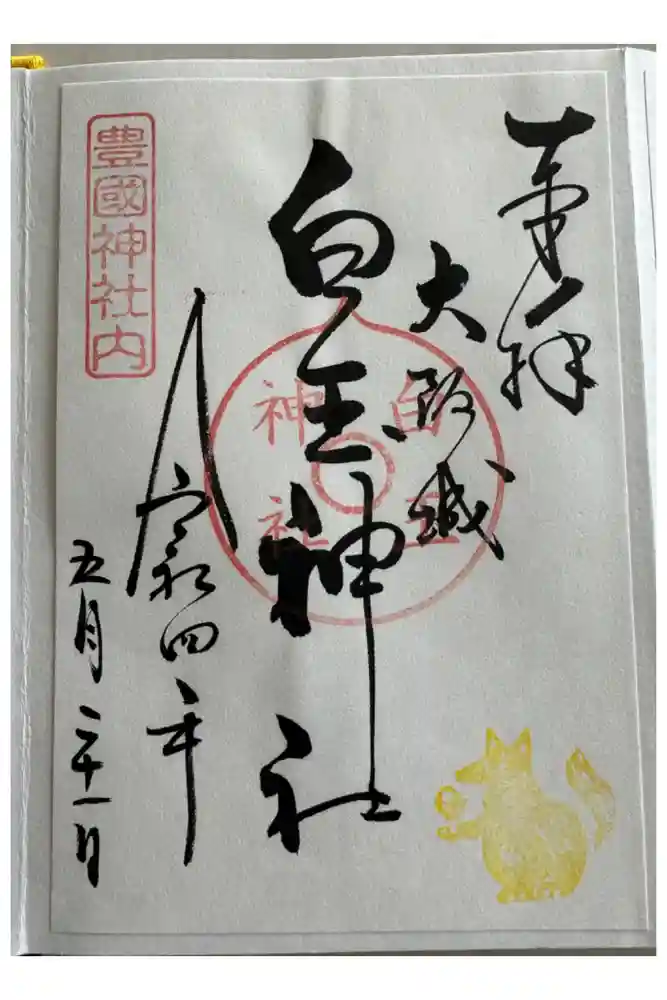 奉拝
大阪城
白玉神社
白玉
神社
令和四年
五月二十一日
豊國神社内